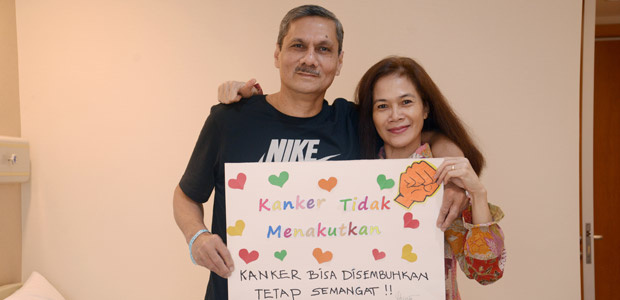 NIKE
Kanker Tidak
Menakutkan
KANKER BISA DISEMBUHKAN
TETAP SEMANGAT !!